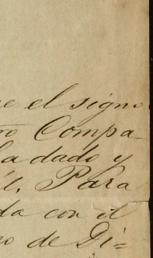 e el signo
no Compa-
la dado y
l. Para
da con el
no de Di=